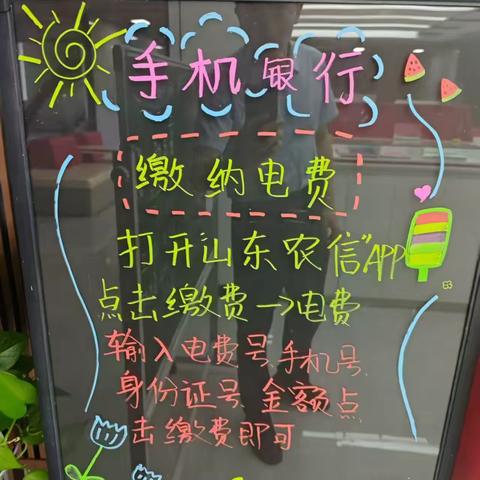 手机银行
缴纳电费
打开"山东农信"APP
点击缴费→电费
输入电费号、手机号、
身份证号、金额点
击缴费即可